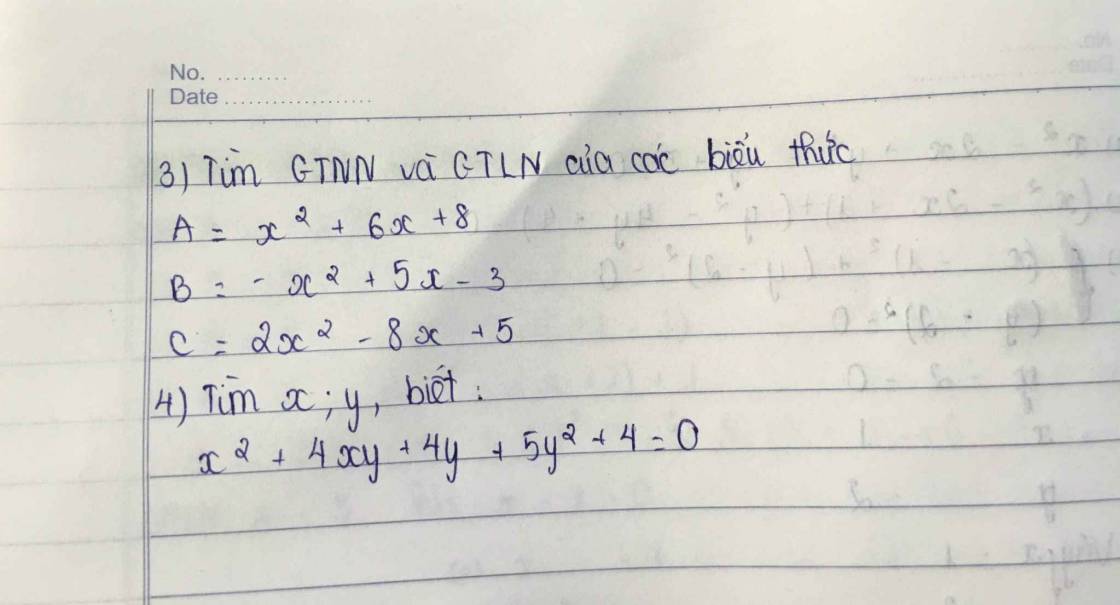 No. .........
Date ...................
3) Tìm GTNN và GTLN của các biểu thức
A = x² + 6x + 8
B = - x² + 5x - 3
C = 2x² - 8x + 5
4) Tìm x; y, biết:
x² + 4xy + 4y + 5y² + 4 = 0